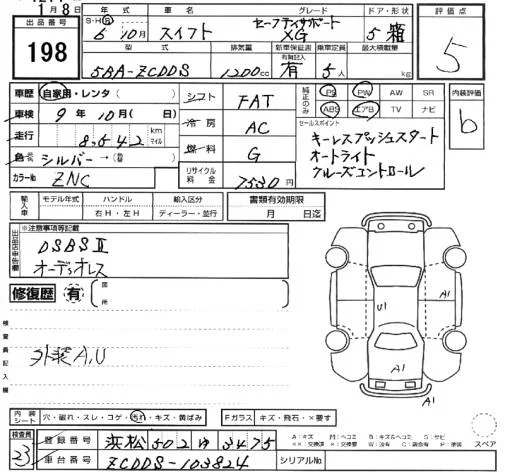 月8日
出品番号
198
年式 車名 グレード ドア・形状
S・H・R
6 10月 スイフト セーフティサポート XG 5 箱
評価点
5
型式 排気量 新車保証書 乗車定員 最大積載量
有無記入
5BA-ZCDDS 1200cc 有 5人 kg
車歴 自家用・レンタ シフト FAT
純正のみ PS PW AW SR
ABS エアB TV ナビ
内装評価
b
車検 9年10月(日) 冷房 AC
セールスポイント
キーレスプッシュスタート
オートライト
クルーズコントロール
走行 8,642 km マイル 燃料 G
色 シルバー→
カラーNo ZNC リサイクル料金 7530円
輸入車 モデル年式 ハンドル 輸入区分 書類有効期限
右H・左H ディーラー・並行 月 日迄
※注意事項等記載
DSBSⅡ
オーディオレス
修復歴 有 箇所
検査員記入欄
外装A,U
U1 A1
A1
内装シート 穴・破れ・スレ・コゲ・汚れ・キズ・黄ばみ
Fガラス キズ・飛石・×要す
検査員 登録番号 浜松502ゆ3475
23 車台番号 ZCDDS-103824 シリアルNo
A:キズ M:ヘコミ B:キズ&ヘコミ S:サビ
スペア